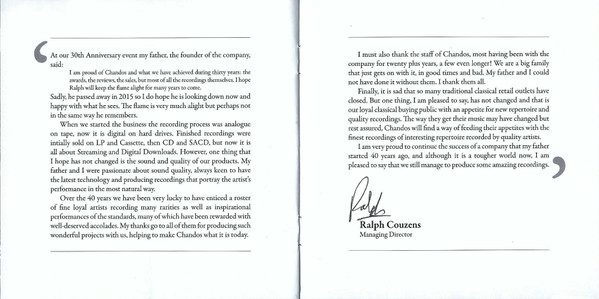 At our 30th Anniversary event my father, the founder of the company,
said:
I am proud of Chandos and what we have achieved during thirty years: the
awards, the reviews, the sales, but most of all the recordings themselves. I hope
Ralph will keep the flame alight for many years to come.
Sadly, he passed away in 2015 so I do hope he is looking down now and
happy with what he sees. The flame is very much alight but perhaps not
in the same way he remembers.
When we started the business the recording process was analogue
on tape, now it is digital on hard drives. Finished recordings were
intially sold on LP and Cassette, then CD and SACD, but now it is
all about Streaming and Digital Downloads. However, one thing that
I hope has not changed is the sound and quality of our products. My
father and I were passionate about sound quality, always keen to have
the latest technology and producing recordings that portray the artist's
performance in the most natural way.
Over the 40 years we have been very lucky to have enticed a roster
of fine loyal artists recording many rarities as well as inspirational
performances of the standards, many of which have been rewarded with
well-deserved accolades. My thanks go to all of them for producing such
wonderful projects with us, helping to make Chandos what it is today.
I must also thank the staff of Chandos, most having been with the
company for twenty plus years, a few even longer! We are a big family
that just gets on with it, in good times and bad. My father and I could
not have done it without them. I thank them all.
Finally, it is sad that so many traditional classical retail outlets have
closed. But one thing, I am pleased to say, has not changed and that is
our loyal classical buying public with an appetite for new repertoire and
quality recordings. The way they get their music may have changed but
rest assured, Chandos will find a way of feeding their appetites with the
finest recordings of interesting repertoire recorded by quality artists.
I am very proud to continue the success of a company that my father
started 40 years ago, and although it is a tougher world now, I am
pleased to say that we still manage to produce some amazing recordings.
Ralph
Ralph Couzens
Managing Director